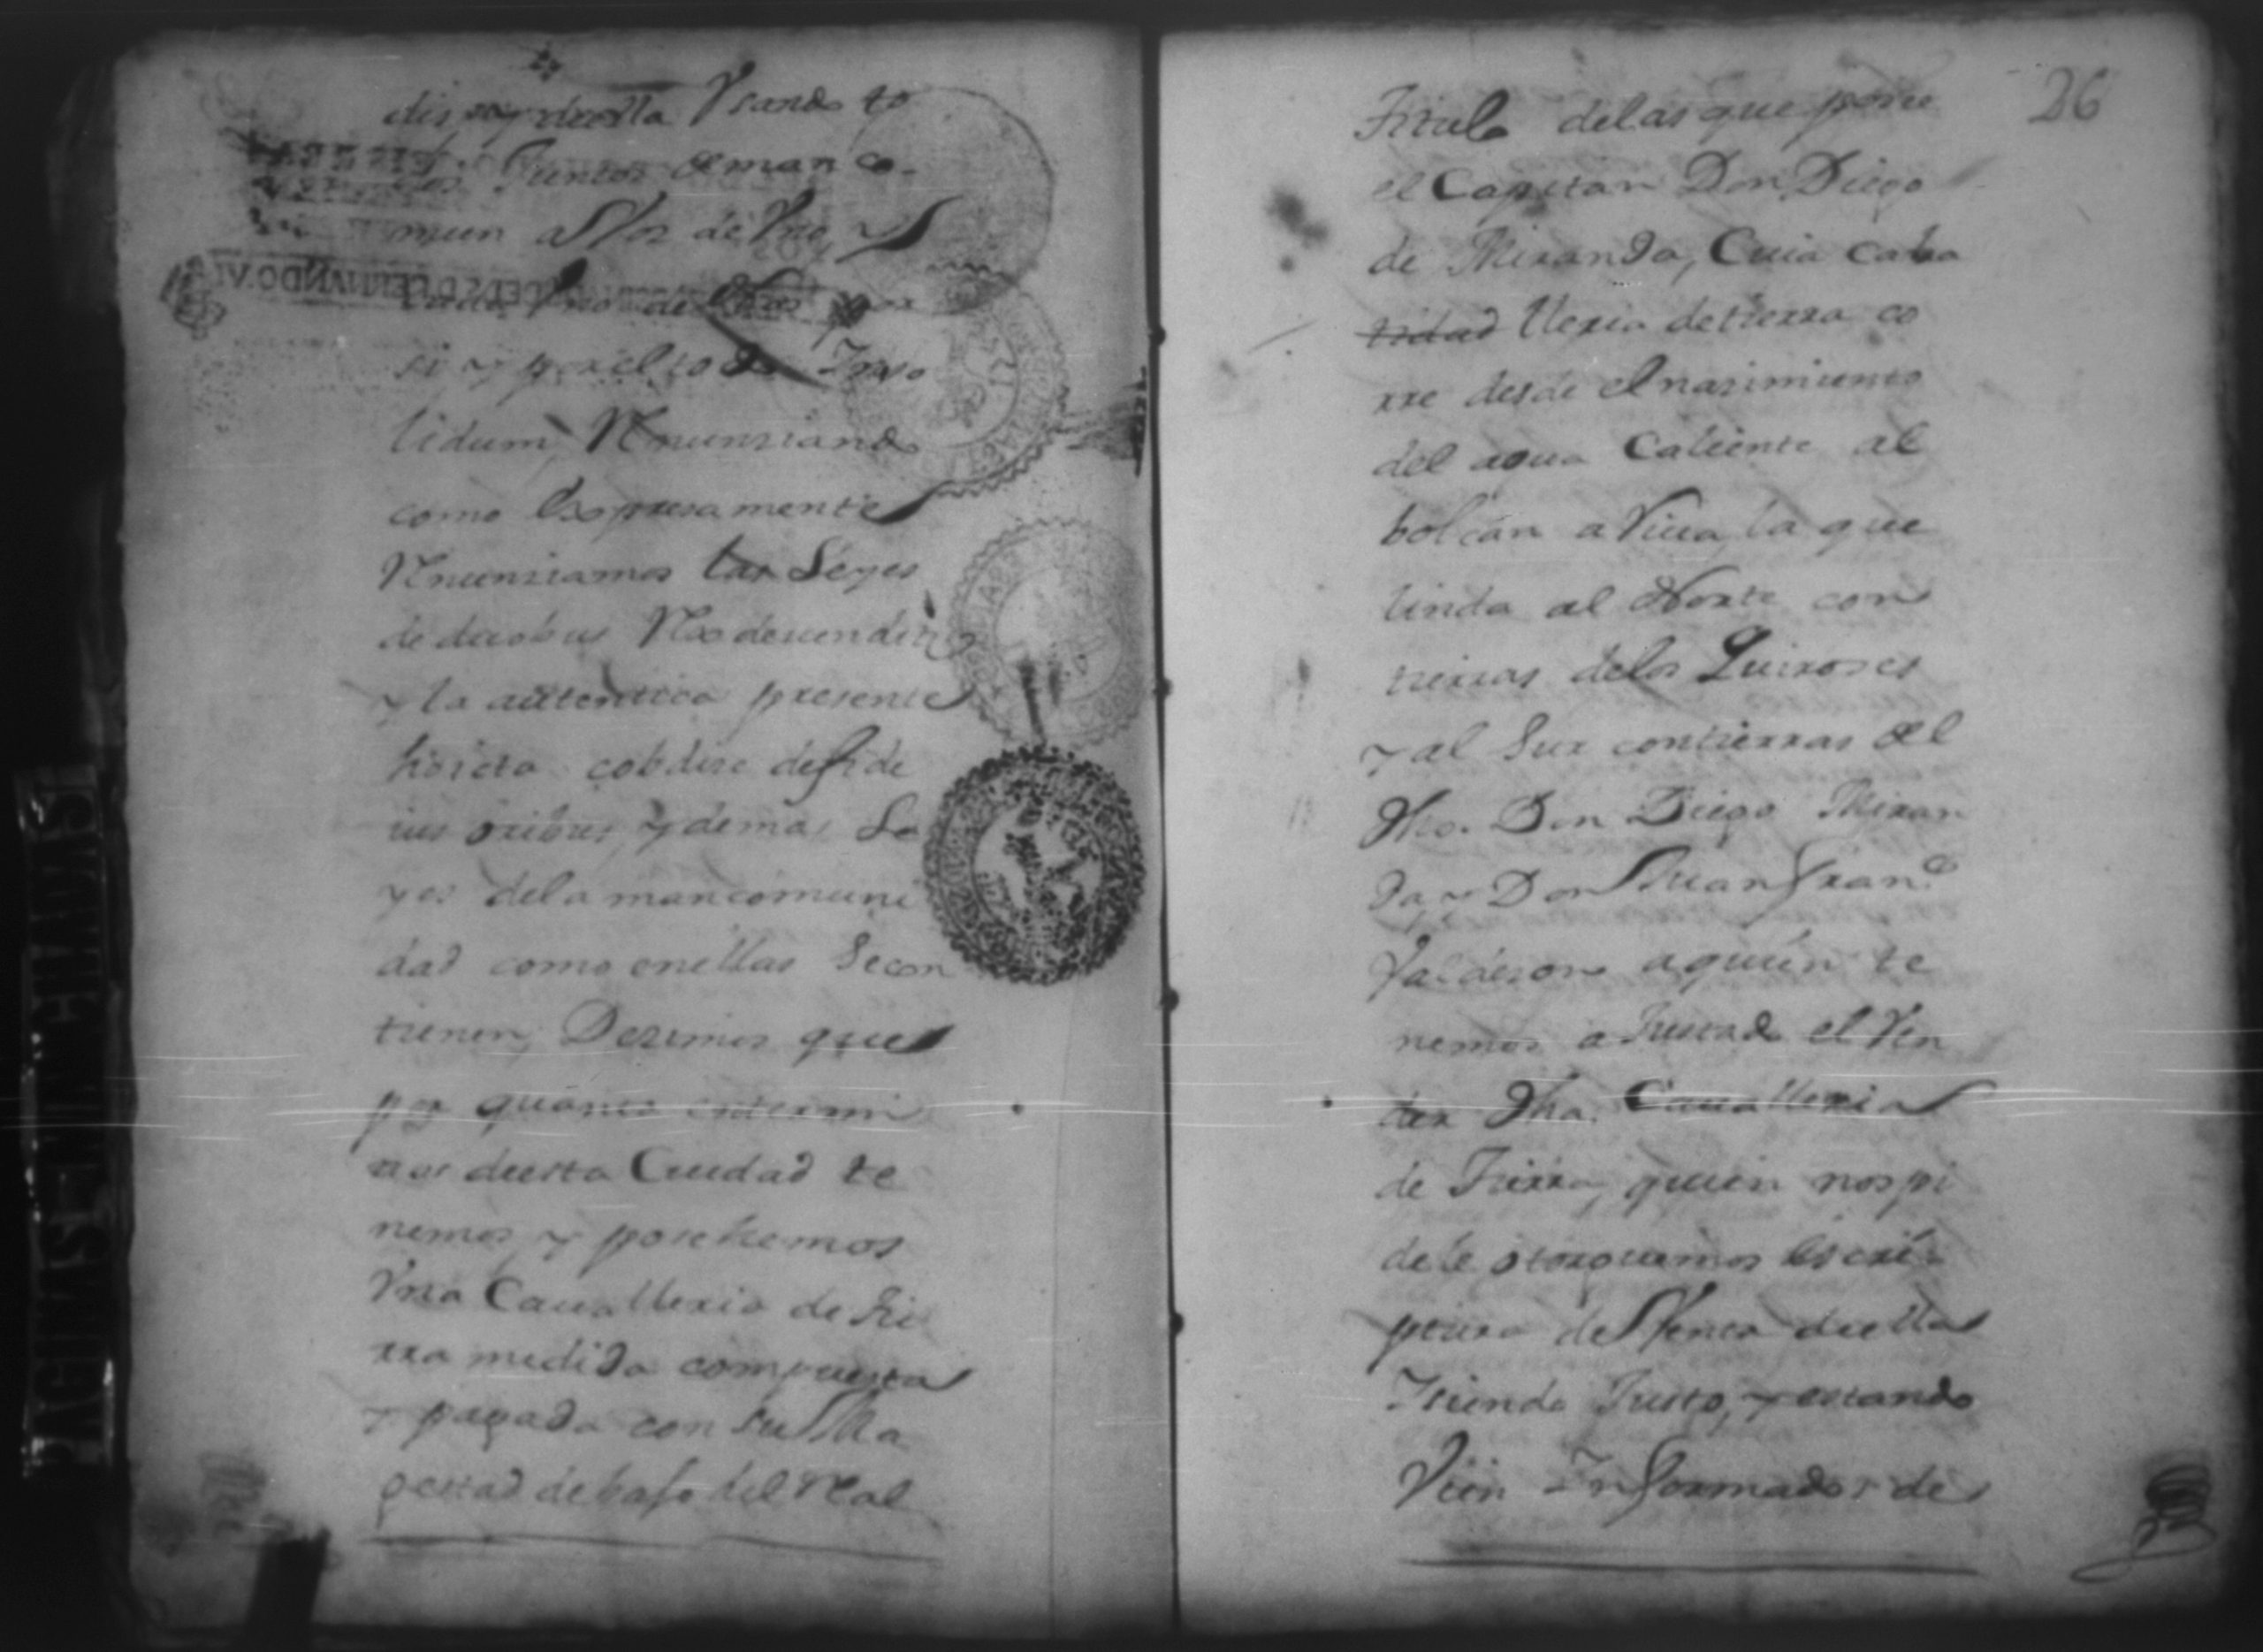 Vsando to
Juntos de man co-
mun a Voz de Vno, y
cada Vno de Nos por
si y por el todo Inso
lidum, Renunsiando
como Expresamente
Renunsiamos las Leyes
de duobus Rex devendi
y la autentica presente
hoicta cobdise defide
ius oribus, y demas Le
yes dela mancomuni
dad como enellas Secon
tienen, Dezimos que
por quanto entermi
nos desta Ciudad te
nemos y posehemos
Vna Cauallexia de tie
rra medida compuesta
y pagada con su Ma
gestad debajo del Real
26
Titulo delas que posee
el Capitan Don Diego
de Miranda, Cuia caba
tidad llexia detierra co
rre desde el nasimiento
del agua Caliente al
bolcan a Viua, la que
linda al Norte con
tierras delos Quiroses
y al Sur contierras del
dho. Don Diego Miran
da y Don Juan Franco
Calderon aquien te
nemos aJustado el Ven
der dha. Cauallexia
de Tierra, quien nos pi
dele otorguemos Escri-
ptura de Venta de ella
Isiendo Justo, y estando
Vien Informados de